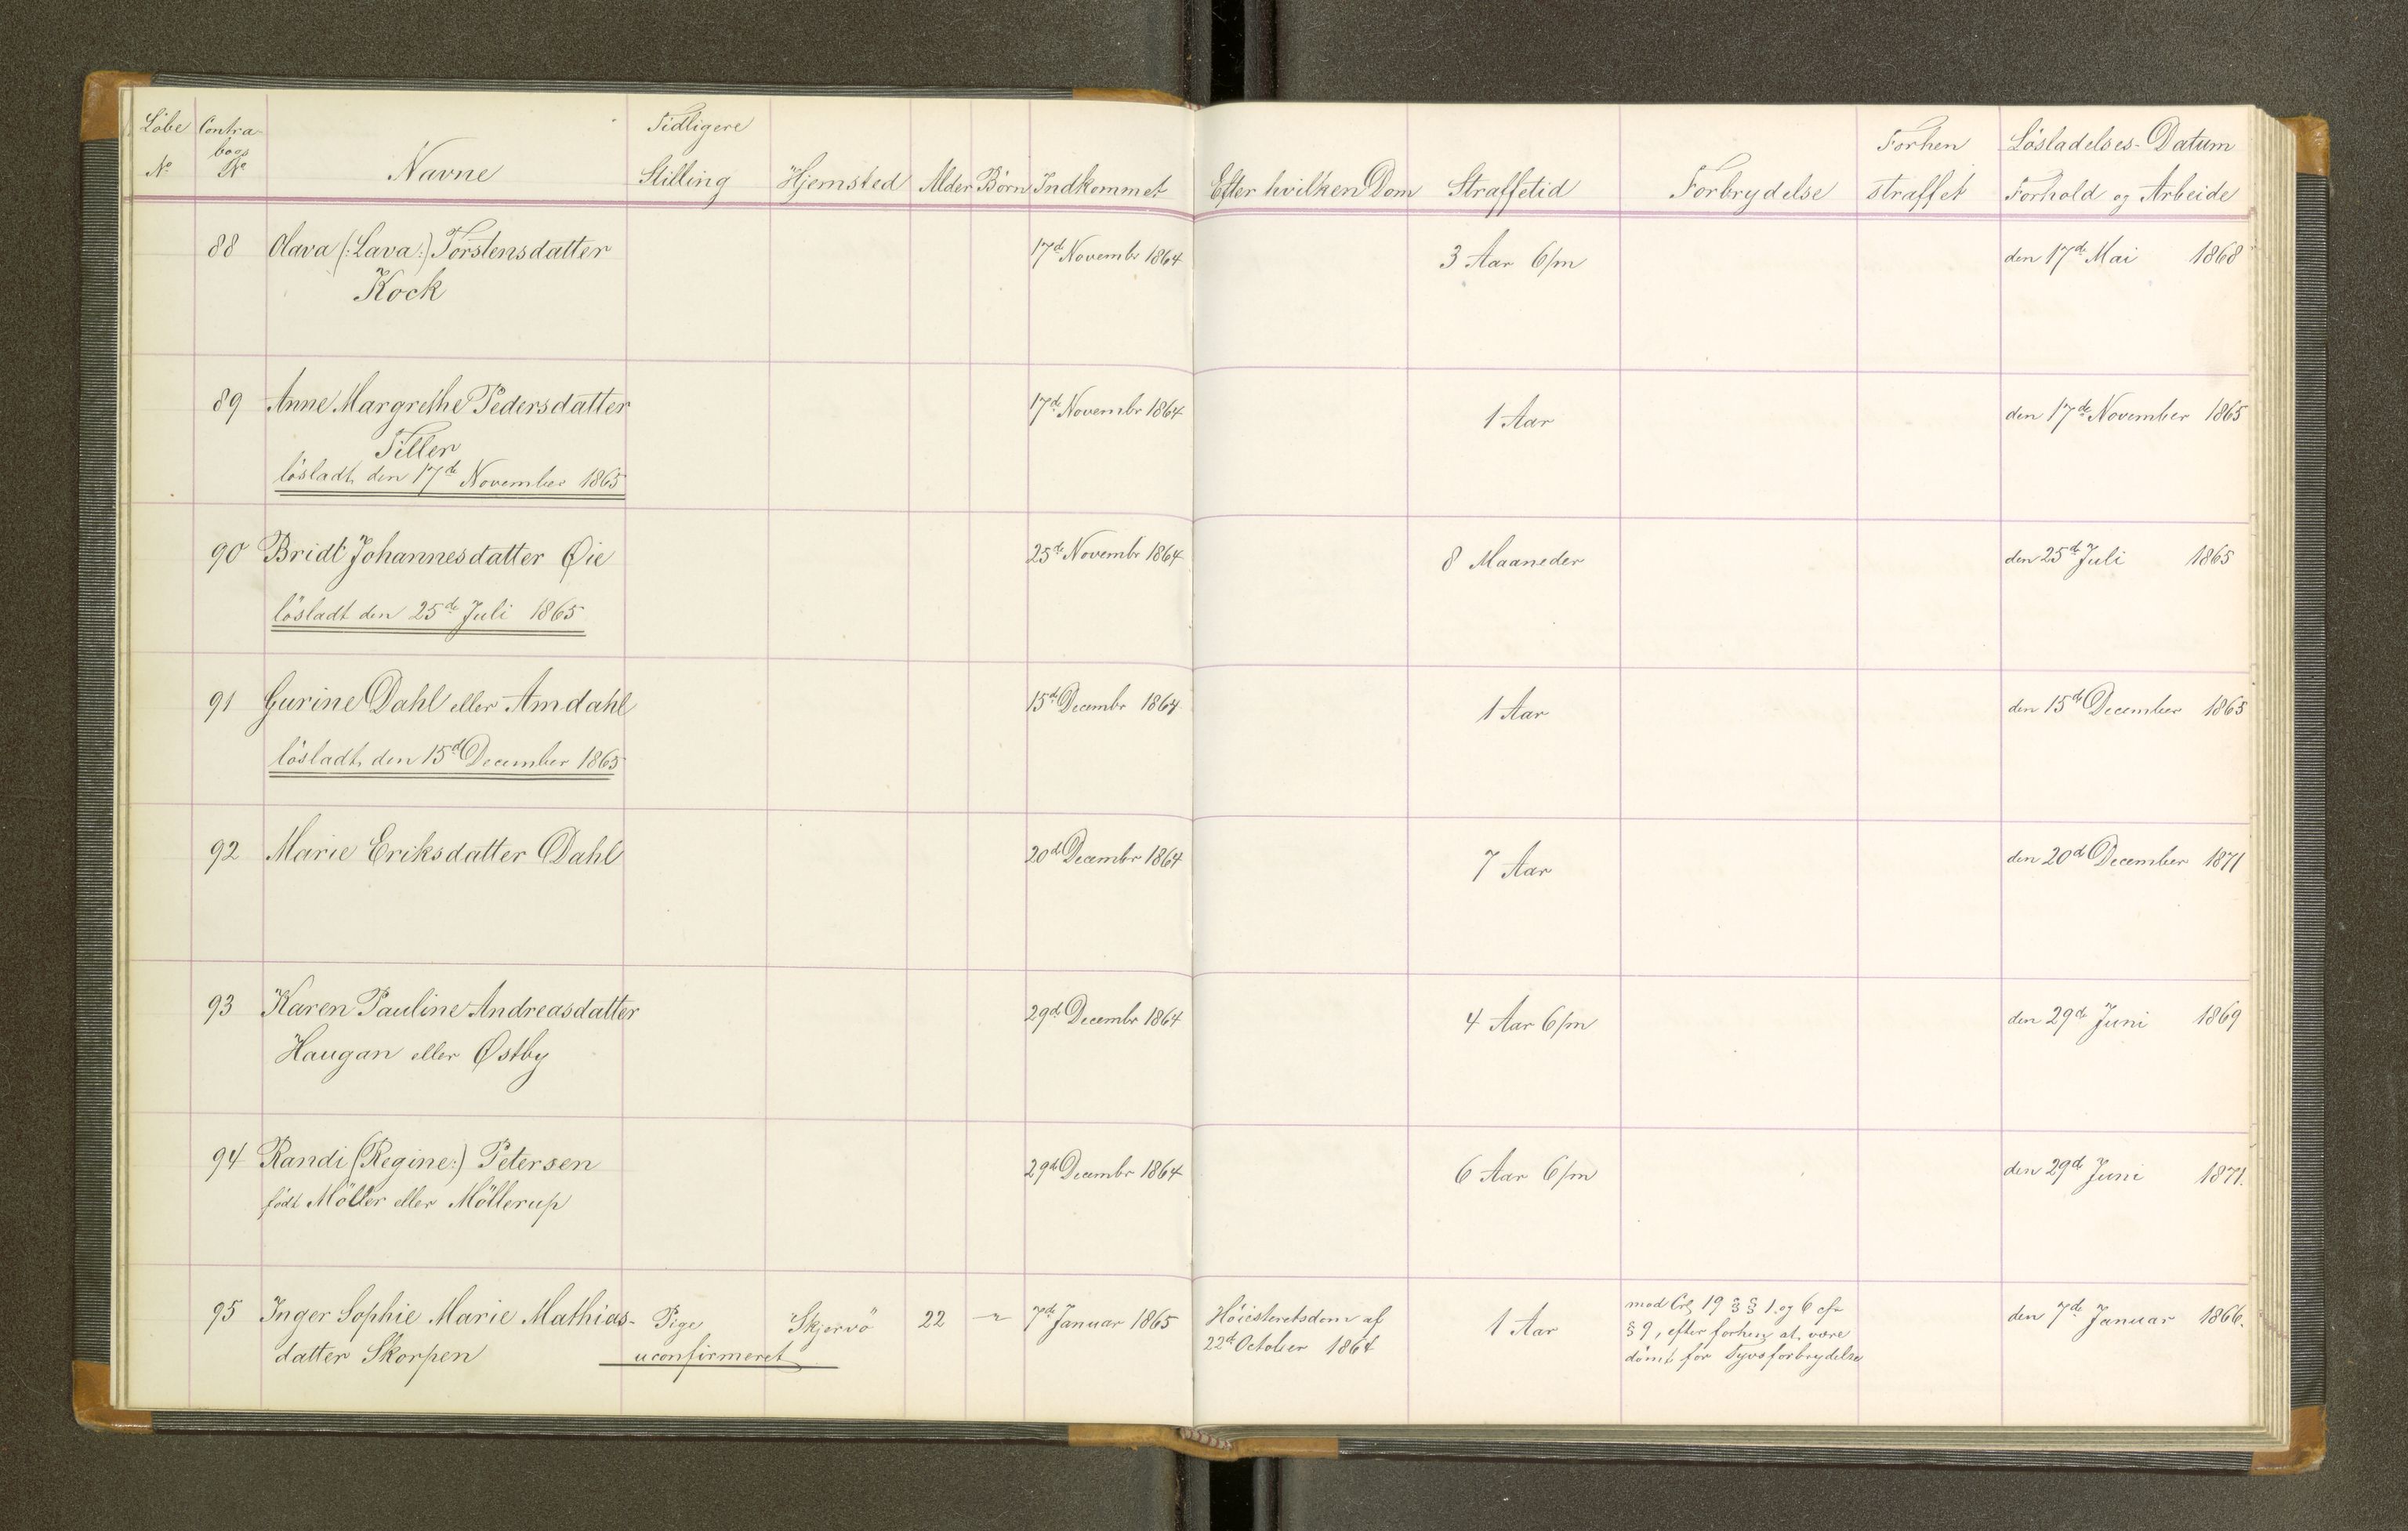 Löbe Contra- Tidligere Forhen Lösladelses-Datum
No boas No Navne Stilling Hjemsted Alder Börn Indkommet Efter hvilken Dom Straffetid Forbrydelse straffet Forhold og Arbeide
88 Olava (:Lava:) Torstensdatter 17de Novembr 1864 3 Aar 6/m den 17de Mai 1868
Kock
89 Anne Margrethe Pedersdatter 17de Novembr 1864 1 Aar den 17de November 1865
Tiller
lösladt den 17de November 1865
90 Bridt Johannesdatter Øie 25de Novembr 1864 8 Maaneder den 25de Juli 1865
lösladt den 25de Juli 1865
91 Gurine Dahl eller Amdahl 15de Decembr 1864 1 Aar den 15de December 1865
lösladt den 15de December 1865
92 Marie Eriksdatter Dahl 20de Decembr 1864 7 Aar den 20de December 1871
93 Karen Pauline Andreasdatter 29de Decembr 1864 4 Aar 6/m den 29de Juni 1869
Haugan eller Østby
94 Randi (Regine:) Petersen 29de Decembr 1864 6 Aar 6/m den 29de Juni 1871.
födt Möller eller Möllerup
95 Inger Sophie Marie Mathias- Pige Skjervö 22 " 7de Januar 1865 Höiesteretsdom af 1 Aar mod Crl 19 § § 1 og 6 cfr den 7de Januar 1866.
datter Skorpen uconfirmeret 22de October 1864 § 9, efter forhen at være
dömt for Tyvsforbrydelse